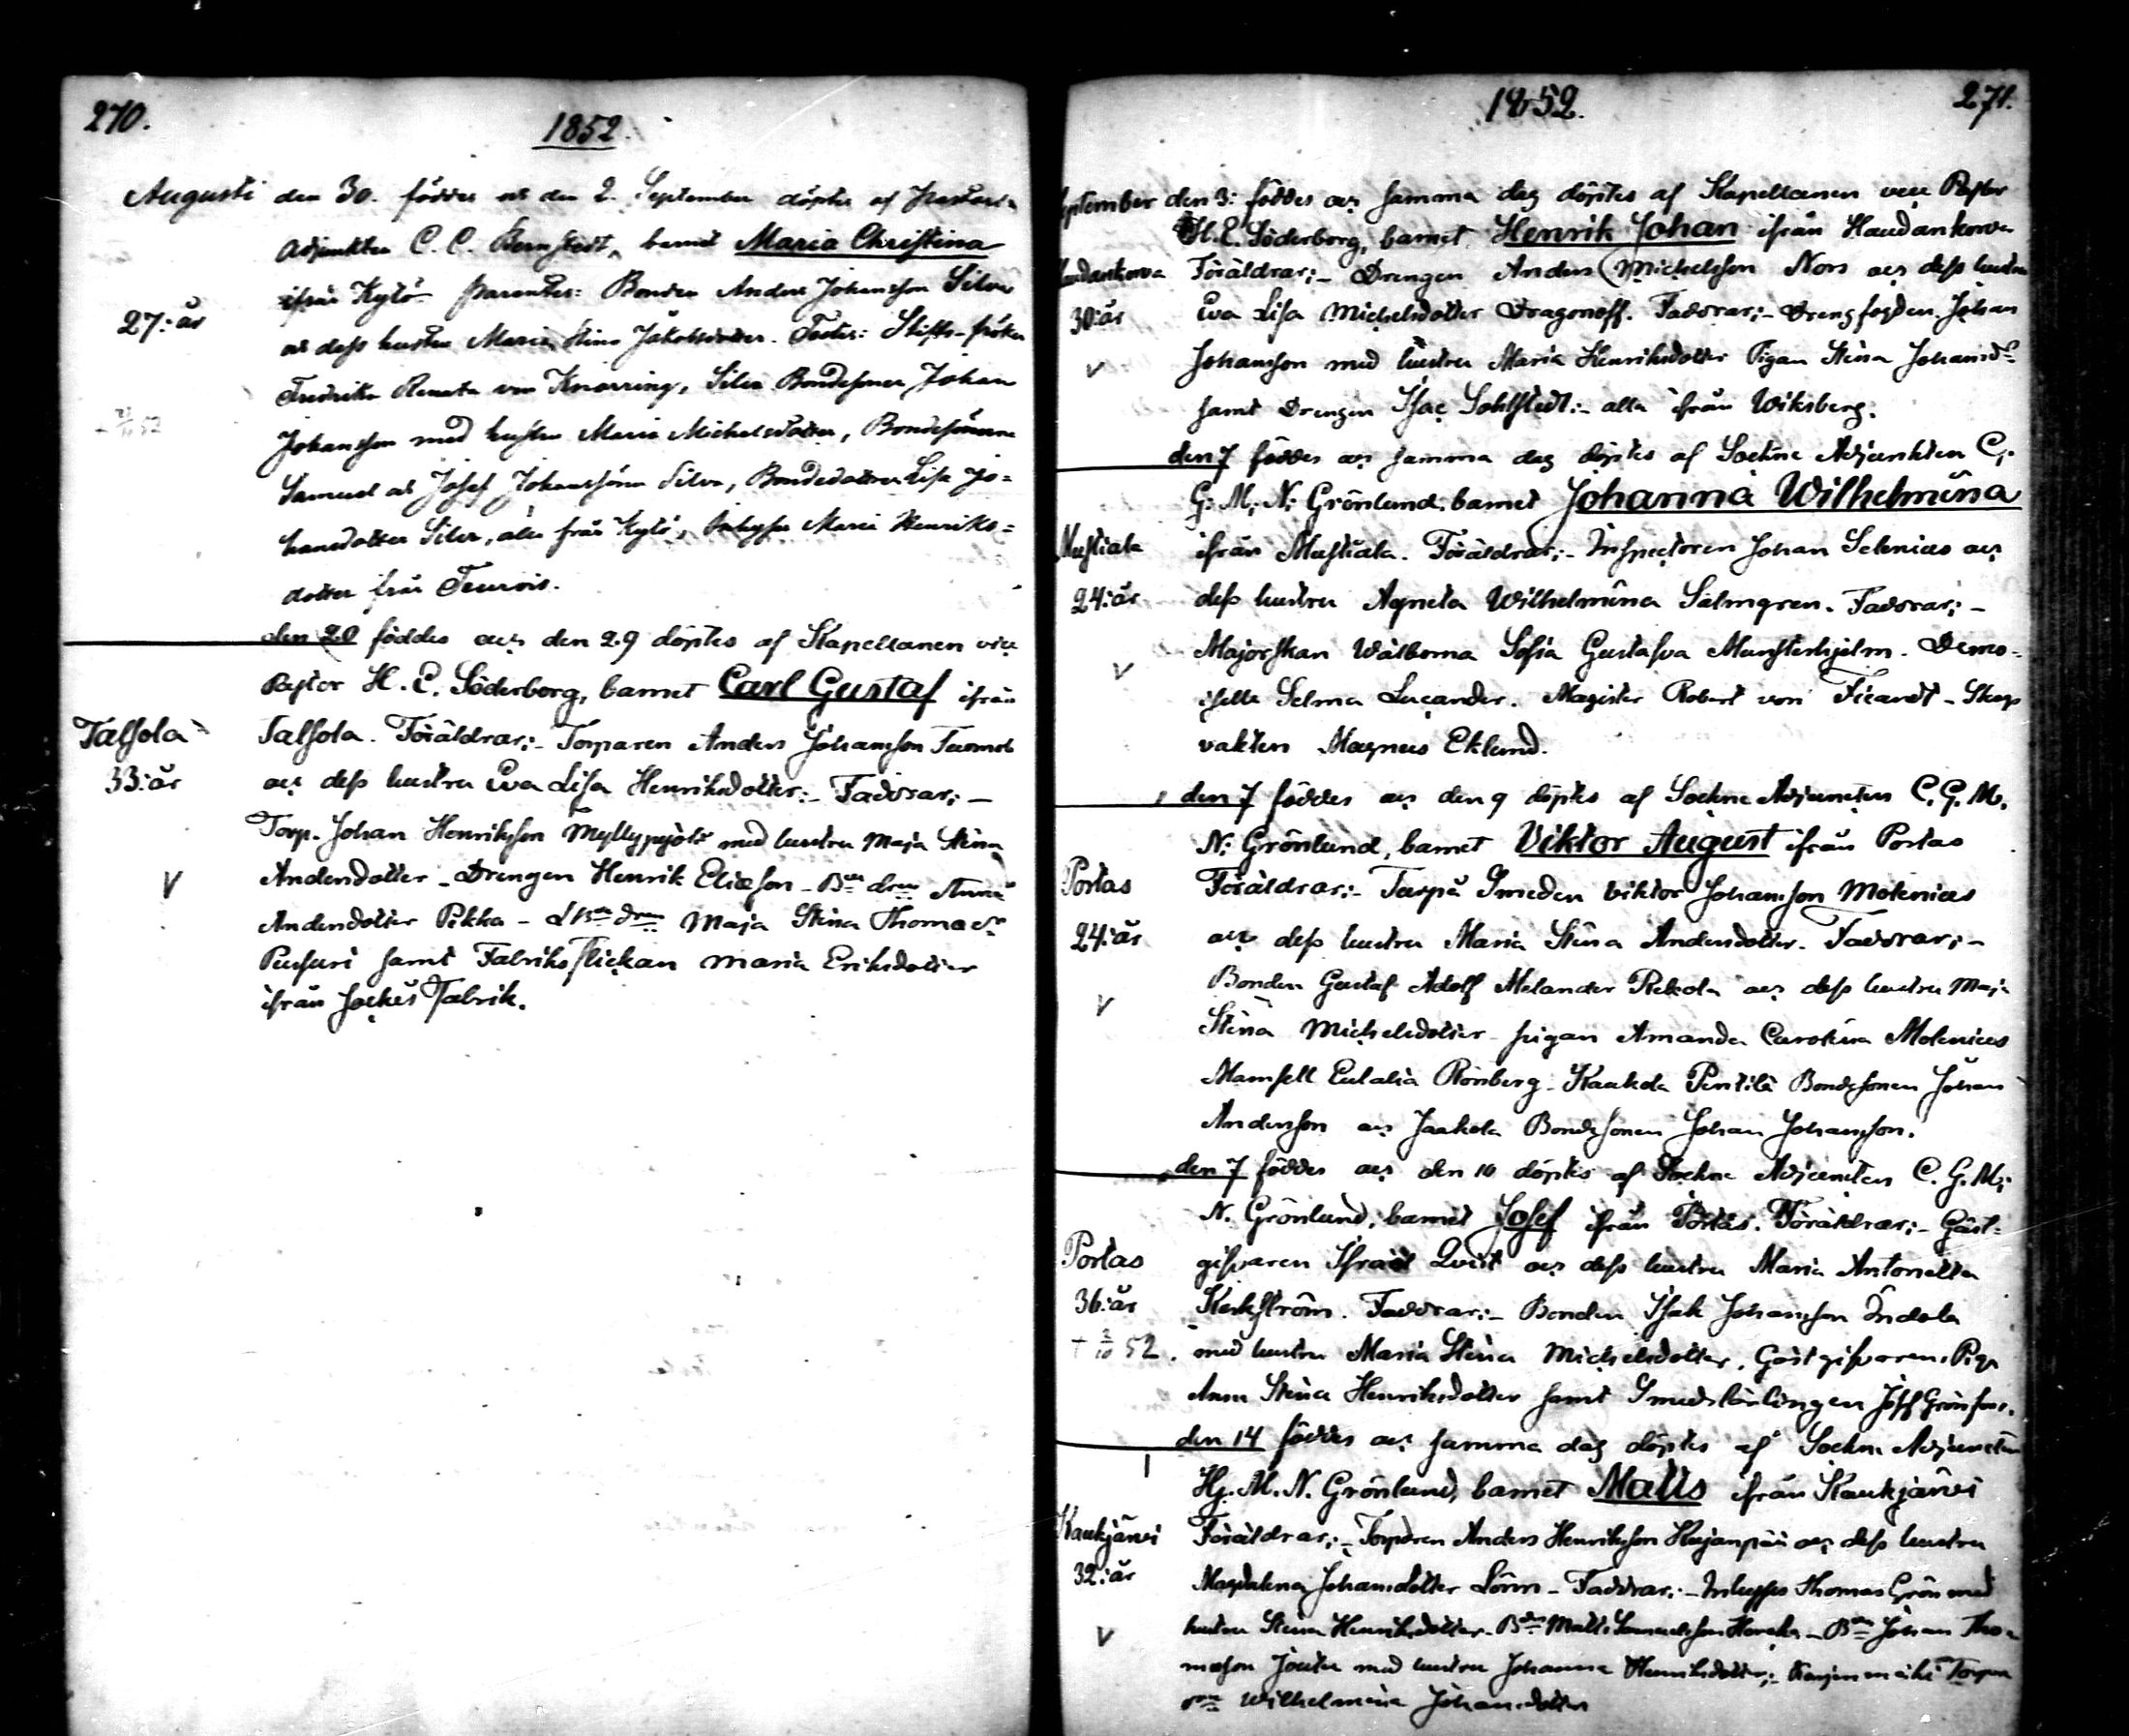 270.
1852.
Augusti den 30. föddes och den 2. September döptes af
Adjunkten C. C. Bernstedt, barnet Maria Christina
ifrån Kylö Parentes: Bonden Anders Johansson Silva
27: år
och dess hustru Maria Stina Jakobsdotter. Testes: Stifts-fröken
Fredrika Renata von Knorring, Silva Bondesonen Johan
Johansson med hustru Maria Michelsdotter, Bondesönerne
Samuel och Josef Johanssöner Silva, Bondedottren Lisa Jo=
hansdotter Silva, alla från Kylö, Inhyses Maria Henriks=
dotter från Teurois.
den 20 föddes och den 29 döptes af Kapellanen vice
Pastor H. E. Söderborg, barnet Carl Gustaf ifrån
Talsola
Talsola. Föräldrar;- Torparen Anders Johansson
33: år
och dess hustru Eva Lisa Henriksdotter:- Faddrar;-
Torp. Johan Henriksson med hustru Maja Stina
V
Andersdotter - Drengen Henrik Eliasson - Anna
Andersdotter Pekka - Maja Stina
samt Fabriks flickan Maria Eriksdotter
ifrån Jockis Fabrik.
1852.
271.
September den 3: föddes och samma dag döptes af Kapellanen vice Pastor
H. E. Söderborg, barnet Henrik Johan ifrån Haudankorva
Haudankorva
Föräldrar;- Drengen Anders Michelsson Nors och dess hustru
30: år
Eva Lisa Michelsdotter Dragonoff. Faddrar;- Drengfogden Johan
V
Johansson med hustru Maria Henriksdotter Pigan Stina Johansd:r
samt Drengen Isac Sohlstedt:- alla ifrån Wiksberg.
den 7 föddes och samma dag döptes af Sockne Adjunkten C.
G. M. N. Grönlund, barnet Johanna Wilhelmina
Mustiala
ifrån Mustiala. Föräldrar;- Inspectoren Johan Selenius och
24: år
dess hustru Agneta Wilhelmina Salmgren. Faddrar;-
V
Majorskan Wälborna Sofia Gustafva Munsterhjelm. Demo-
iselle Selma Lucander. Magister Robert von Fieandt - Skogs
vakten Magnus Eklund.
den 7 föddes och den 9 döptes af Sockne Adjuncten C. G. M.
N. Grönlund, barnet Viktor August ifrån Portas
Portas
Föräldrar;- Smeden Viktor Johansson Molenius
24: år
och dess hustru Maria Stina Andersdotter. Faddrar;-
V
Bonden Gustaf Adolf Melander Rekola och dess hustru Maja
Stina Michelsdotter pigan Amanda Carolina Molenius
Mamsell Eulalia Rönberg - Kaukola Pentilä Bondesonen Johan
Andersson och Jaakola Bondesonen Johan Johansson.
den 7 föddes och den 10 döptes af Sockne Adjuncten C. G. M.
N. Grönlund, barnet Josef ifrån Portas. Föräldrar;- Gäst-
Portas
gifvaren Israel Qvist och dess hustru Maria Antonetta
36: år
Faddrar;- Bonden Isak Johansson Indola
† 3/10 52.
med hustru Maria Stina Michelsdotter, Gästgifvarens Piga
Anna Stina Henriksdotter samt Smedslärlingen
den 14 föddes och samma dag döptes af Sockne Adjuncten
Hj. M. N. Grönlund, barnet Matts ifrån Kaukjärvi
Kaukjärvi
Föräldrar;- Torparen Anders Henriksson Hujanpää och dess hustru
32: år
Magdalena Johansdotter Lörm - Faddrar;- Inhyses Thomas Grön med
V
hustru Stina Henriksdotter - Matts Samuelsson - Johan Tho-
masson med hustru Johanna Henriksdotter;-
Wilhelmina Johansdotter